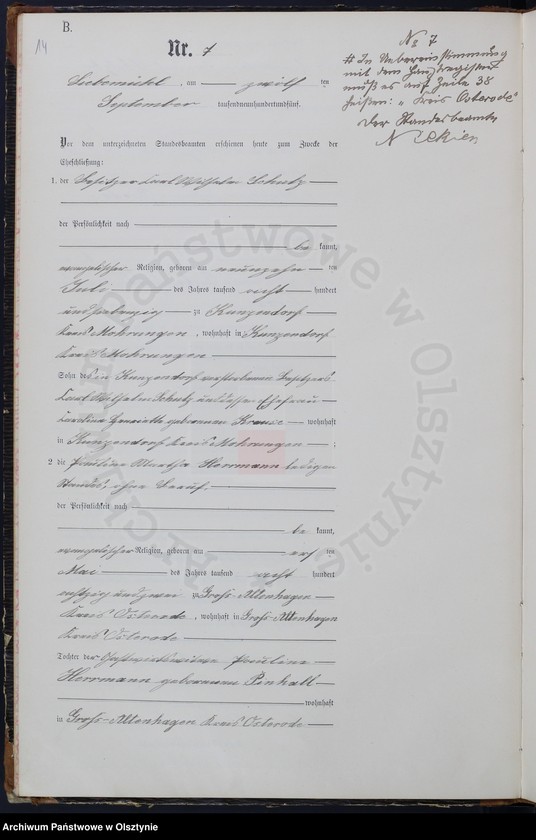 B.
14
Nr. 7
No 7
# In Uebereinstimmung
mit dem Hauptregister
muß es auf Zeile 38
heißen: "Kreis Osterode"
Der Standesbeamte
Liebemühl, am zwölf ten
September tausendneunhundertundfünf.
Vor dem unterzeichneten Standesbeamten erschienen heute zum Zwecke der
Eheschließung:
1. der Besitzer Karl Wilhelm Schulz
der Persönlichkeit nach
be kannt,
evangelischer Religion, geboren am neunzehn ten
Juli des Jahres tausend acht hundert
undsiebenzig zu Kunzendorf
Kreis Mohrungen, wohnhaft in Kunzendorf
Kreis Mohrungen
Sohn des in Kunzendorf verstorbenen Besitzers
Karl Wilhelm Schulz und dessen Ehefrau
Karoline Henriette geborenen Krause wohnhaft
in Kunzendorf Kreis Mohrungen ;
2 die Pauline Martha Herrmann ledigen
Standes, ohne Beruf.
der Persönlichkeit nach
be kannt,
evangelischer Religion, geboren am ersten
Mai des Jahres tausend acht hundert
achtzig und zu Groß-Altenhagen
Kreis Osterode, wohnhaft in Groß-Altenhagen
Kreis Osterode
Tochter der Gastwirtswitwe Pauline
Herrmann geborenen Pinhall
wohnhaft
in Groß-Altenhagen Kreis Osterode
Archiwum Państwowe w Olsztynie
Archiwum Państwowe w Olsztynie